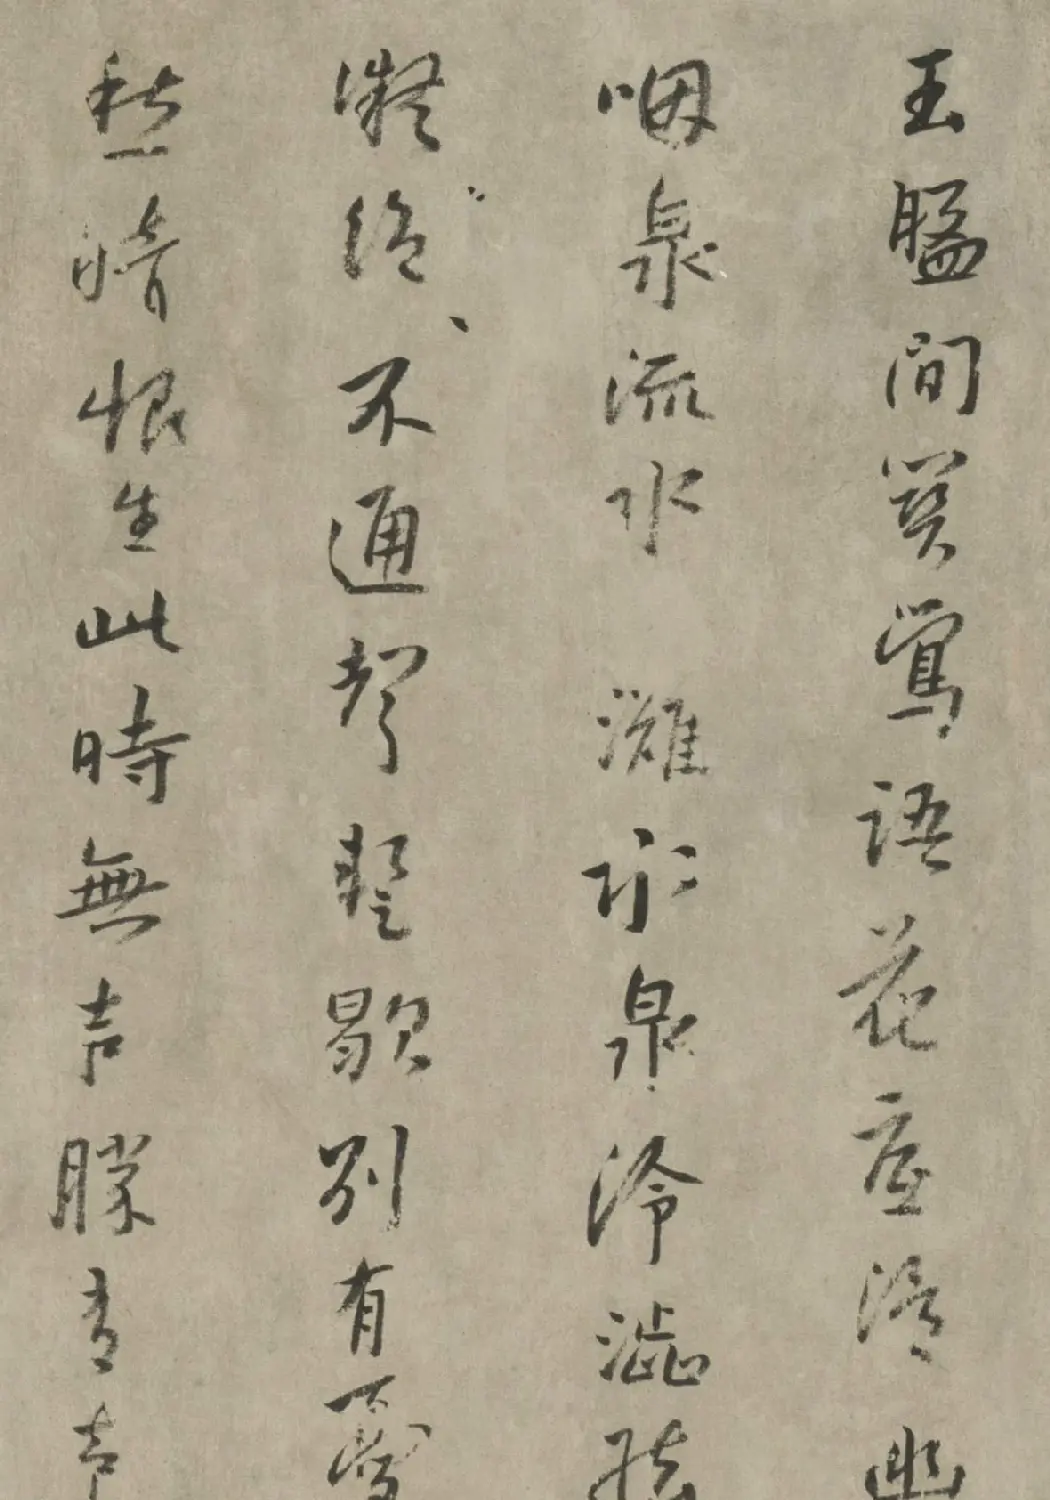 玉盤間關鶯語花底滑幽
咽泉流水灘水泉冷澁弦
凝絶不通聲蹔歇別有
愁暗恨生此時無声勝有声